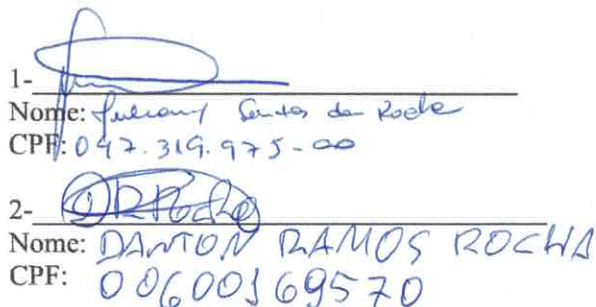 1-
Nome: Juliany Santos da Rocha
CPF: 047.319.975-00
2- DRRocha
Nome: DANTON RAMOS ROCHA
CPF: 00600169570